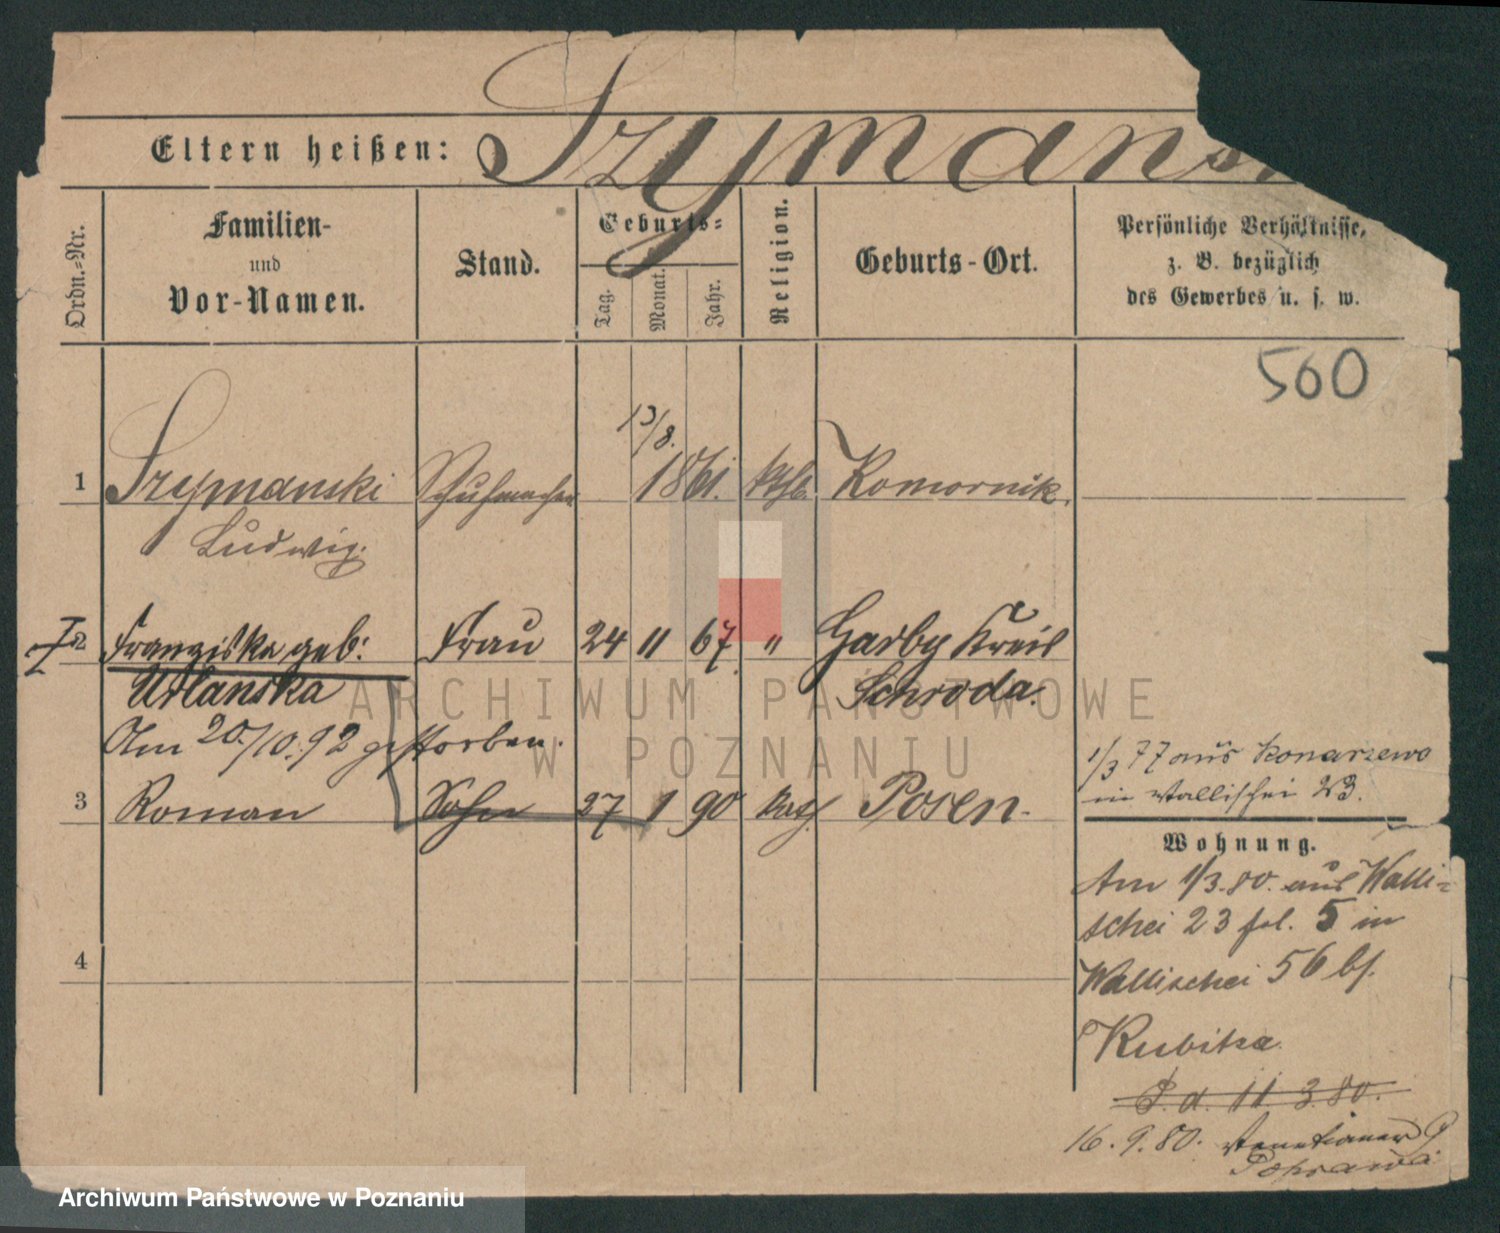 Eltern heißen: Szymans
Ordn.-Nr.
Familien-
und
Vor-Namen.
Stand.
Geburts-
Tag.
Monat.
Jahr.
Religion.
Geburts-Ort.
Persönliche Verhältnisse,
z. B. bezüglich
des Gewerbes u. s. w.
500
13/8.
1 Szymanski Schuhmacher 1861. kth. Komornik.
Ludwig.
2 Franziska geb: Frau 24 11 67. " Garby Kreis
Schroda.
Am 20./10.92 gestorben.
1/3 77 aus Konarzewo
in Wallischei 23.
3 Roman Sohn 27 1 90 kath. Posen
Wohnung.
Am 1/3.80. aus Walli-
schei 23 fol. 5 in
Wallischei 56 bf.
4
Kubitza
P. d. 11. 3. 80.
16. 9. 80. Venetianer 9
Poprawa
ARCHIWUM PAŃSTWOWE
W POZNANIU
Archiwum Państwowe w Poznaniu